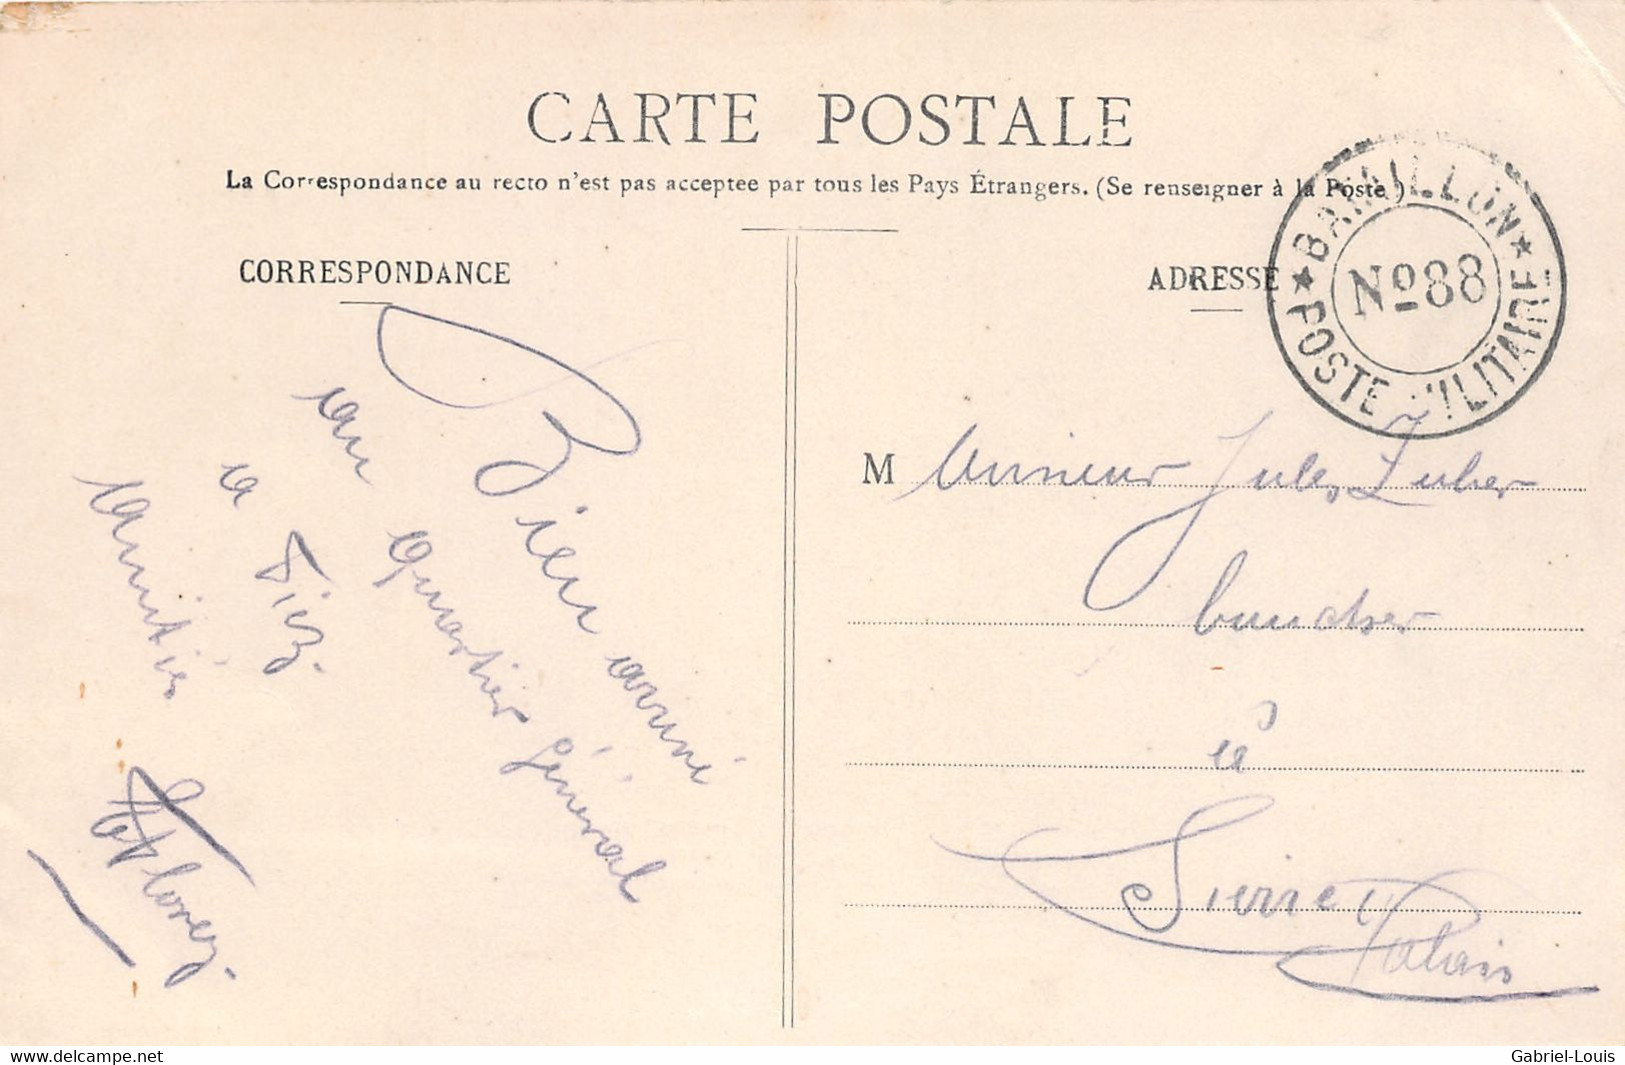 CARTE POSTALE
La Correspondance au recto n'est pas acceptee par tous les Pays Étrangers. (Se renseigner à la Poste)
CORRESPONDANCE
ADRESSE
★ BATAILLON ★
Nº 88
POSTE MILITAIRE
Bien arrivé
au quartier général
a Viez.
Amitiés
M Monsieur Jules Zuber
à
Sierre
Valais
www.delcampe.net
Gabriel-Louis